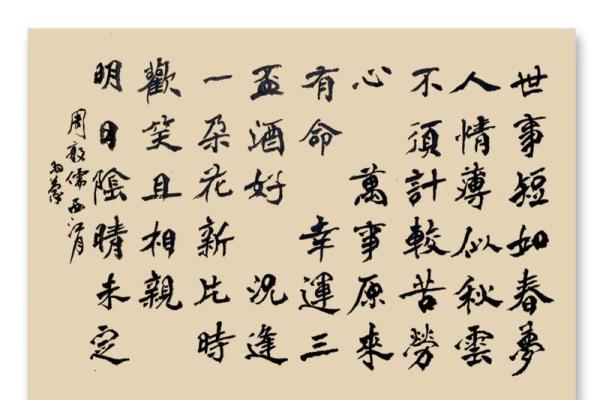 世事短如春夢
人情薄似秋雲
不須計較苦勞
心 萬事原來
有命 幸運三
盃酒好 況逢
一朵花新片時
歡笑且相親
明日陰晴未定
周敦儒西江月